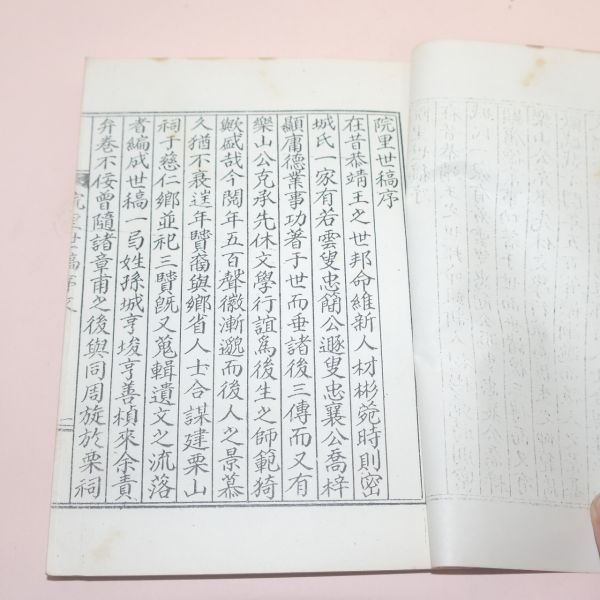 院里世稿序
在昔恭靖王之世邦命維新人材彬菀時則密
城氏一家有若雲叟忠簡公遯叟忠襄公喬梓
顯庸德業事功著于世而垂諸後三傳而又有
樂山公克承先休文學行誼爲後生之師範猗
歟盛哉今閱年五百聲徽漸邈而後人之景慕
久猶不衰逞年贒裔與鄉省人士合謀建栗山
祠于慈仁鄉並祀三贒旣又蒐輯遺文之流落
者編成世稿一局姓孫城亨埈亨善楨來余責
弁卷不佞曾隨諸章甫之後與同周旋於栗祠
院里世稿序